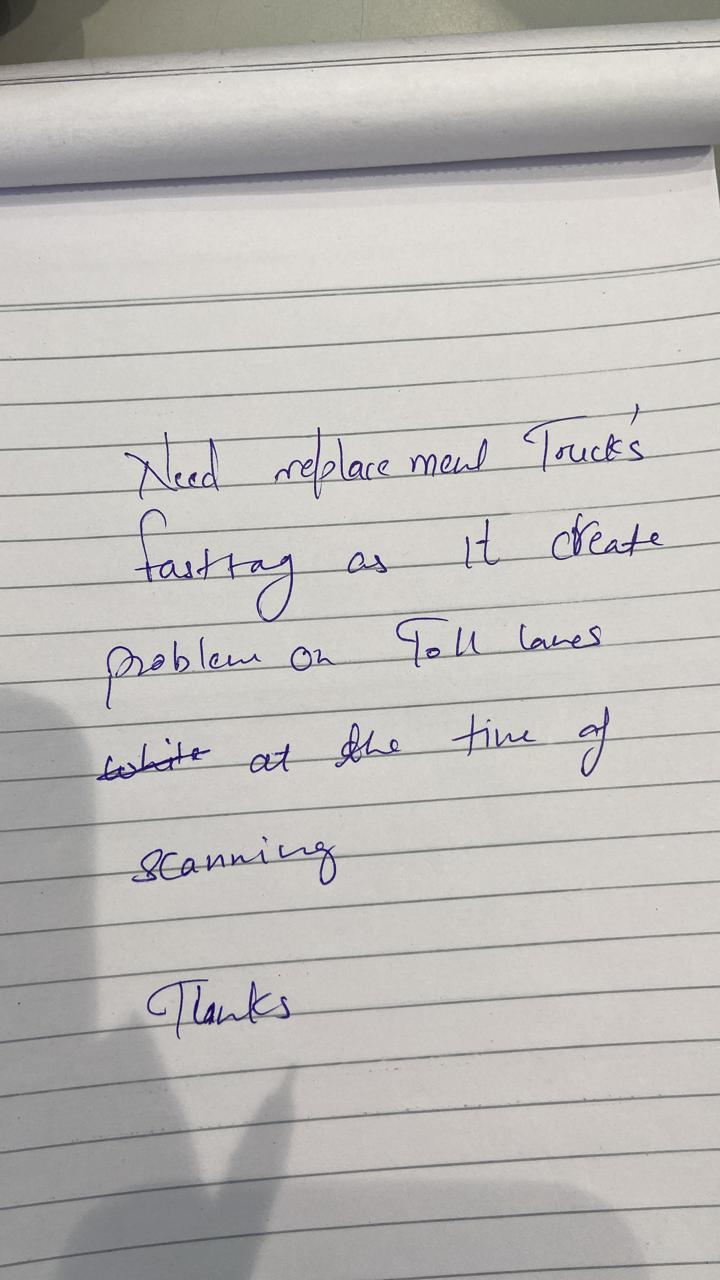 Need replacement Truck's
fasttag as it create
problem on Toll lanes
at the time of
scanning
Thanks